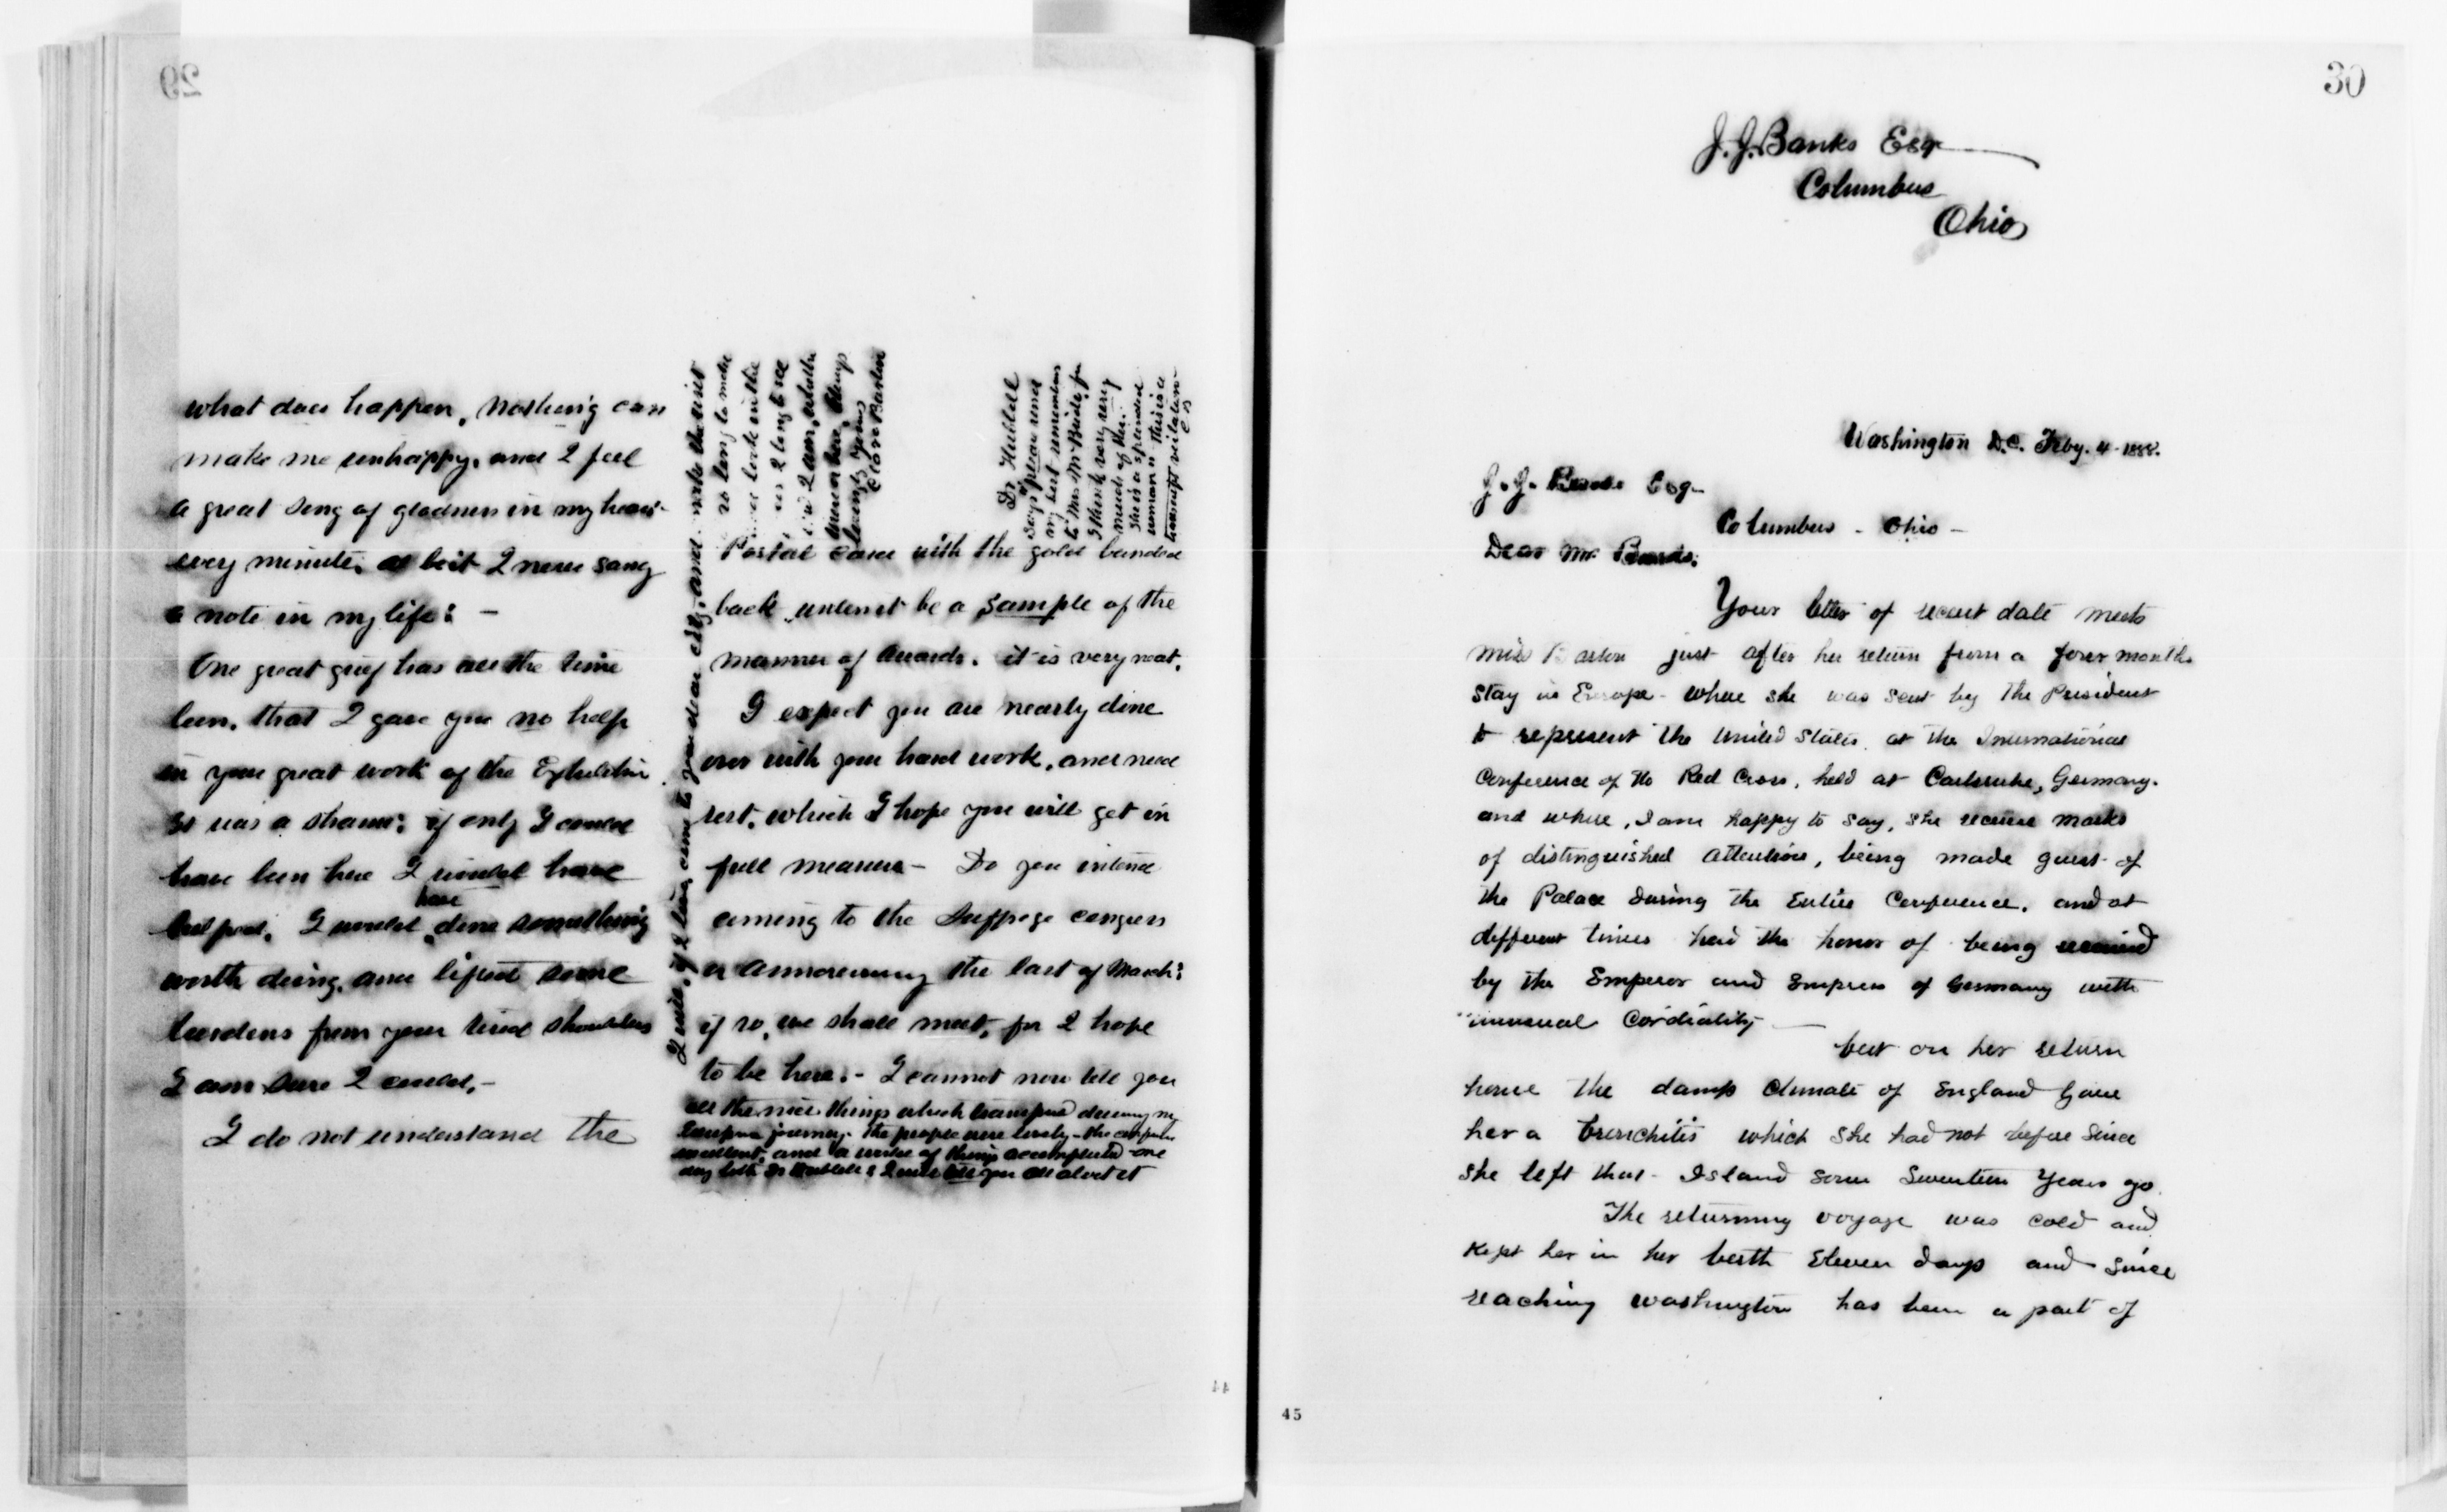 29
what does happen, Nothing can
make me unhappy, and I feel
a great song of gladness in my heart
every minute, albeit I never sang
a note in my life: —
One great grief has all the time
been, that I gave you no help
in your great work of the Exhibition
it was a shame; if only I could
have been here I would have
helped. I would have done something
worth doing, and lifted some
burdens from your tired shoulders
I am sure I could. —
I do not understand the
Postal card with the gold banded
back, unless it be a sample of the
manner of Awards. it is very neat.
I expect you are nearly done
over with your hard work, and need
rest, which I hope you will get in
full measure — Do you intend
coming to the Suffrage congress
the last of March:
if so, we shall meet, for I hope
to be here. - I cannot now tell you
all the nice things which transpired during my
European journey. The people were lovely - the
excellent, and a world of things accomplished - one
day both Dr Hubbell & I will tell you all about it
I will, if I live, come to you dear and make the visit
so long to make
look in the
I long to see
I am, whether
here,
Loving yours
Clara Barton
Dr Hubbell
says please send
my best remembrances
to Mrs McBride, for
I think very very
much of her.
She is a splendid
woman. This is a
C B
30
J. J. Banks Esq
Columbus
Ohio
Washington D.C. Feby. 4 - 1888.
J. J. Banks Esq -
Columbus - Ohio -
Dear Mr. Banks:
Your letter of recent date meets
Miss Barton just after her return from a four months
stay in Europe - where she was sent by the President
to represent the United States, at the International
Conference of the Red Cross, held at Carlsruhe, Germany.
and where, I am happy to say, she received marks
of distinguished attention, being made guest of
the Palace during the Entire Conference, and at
different times had the honor of being received
by the Emperor and Empress of Germany with
unusual Cordiality —
but on her return
home the damp Climate of England gave
her a bronchitis which she had not before since
she left that Island some Seventeen years go.
The returning voyage was cold and
kept her in her berth Eleven days and since
reaching Washington has been a part of
44
45